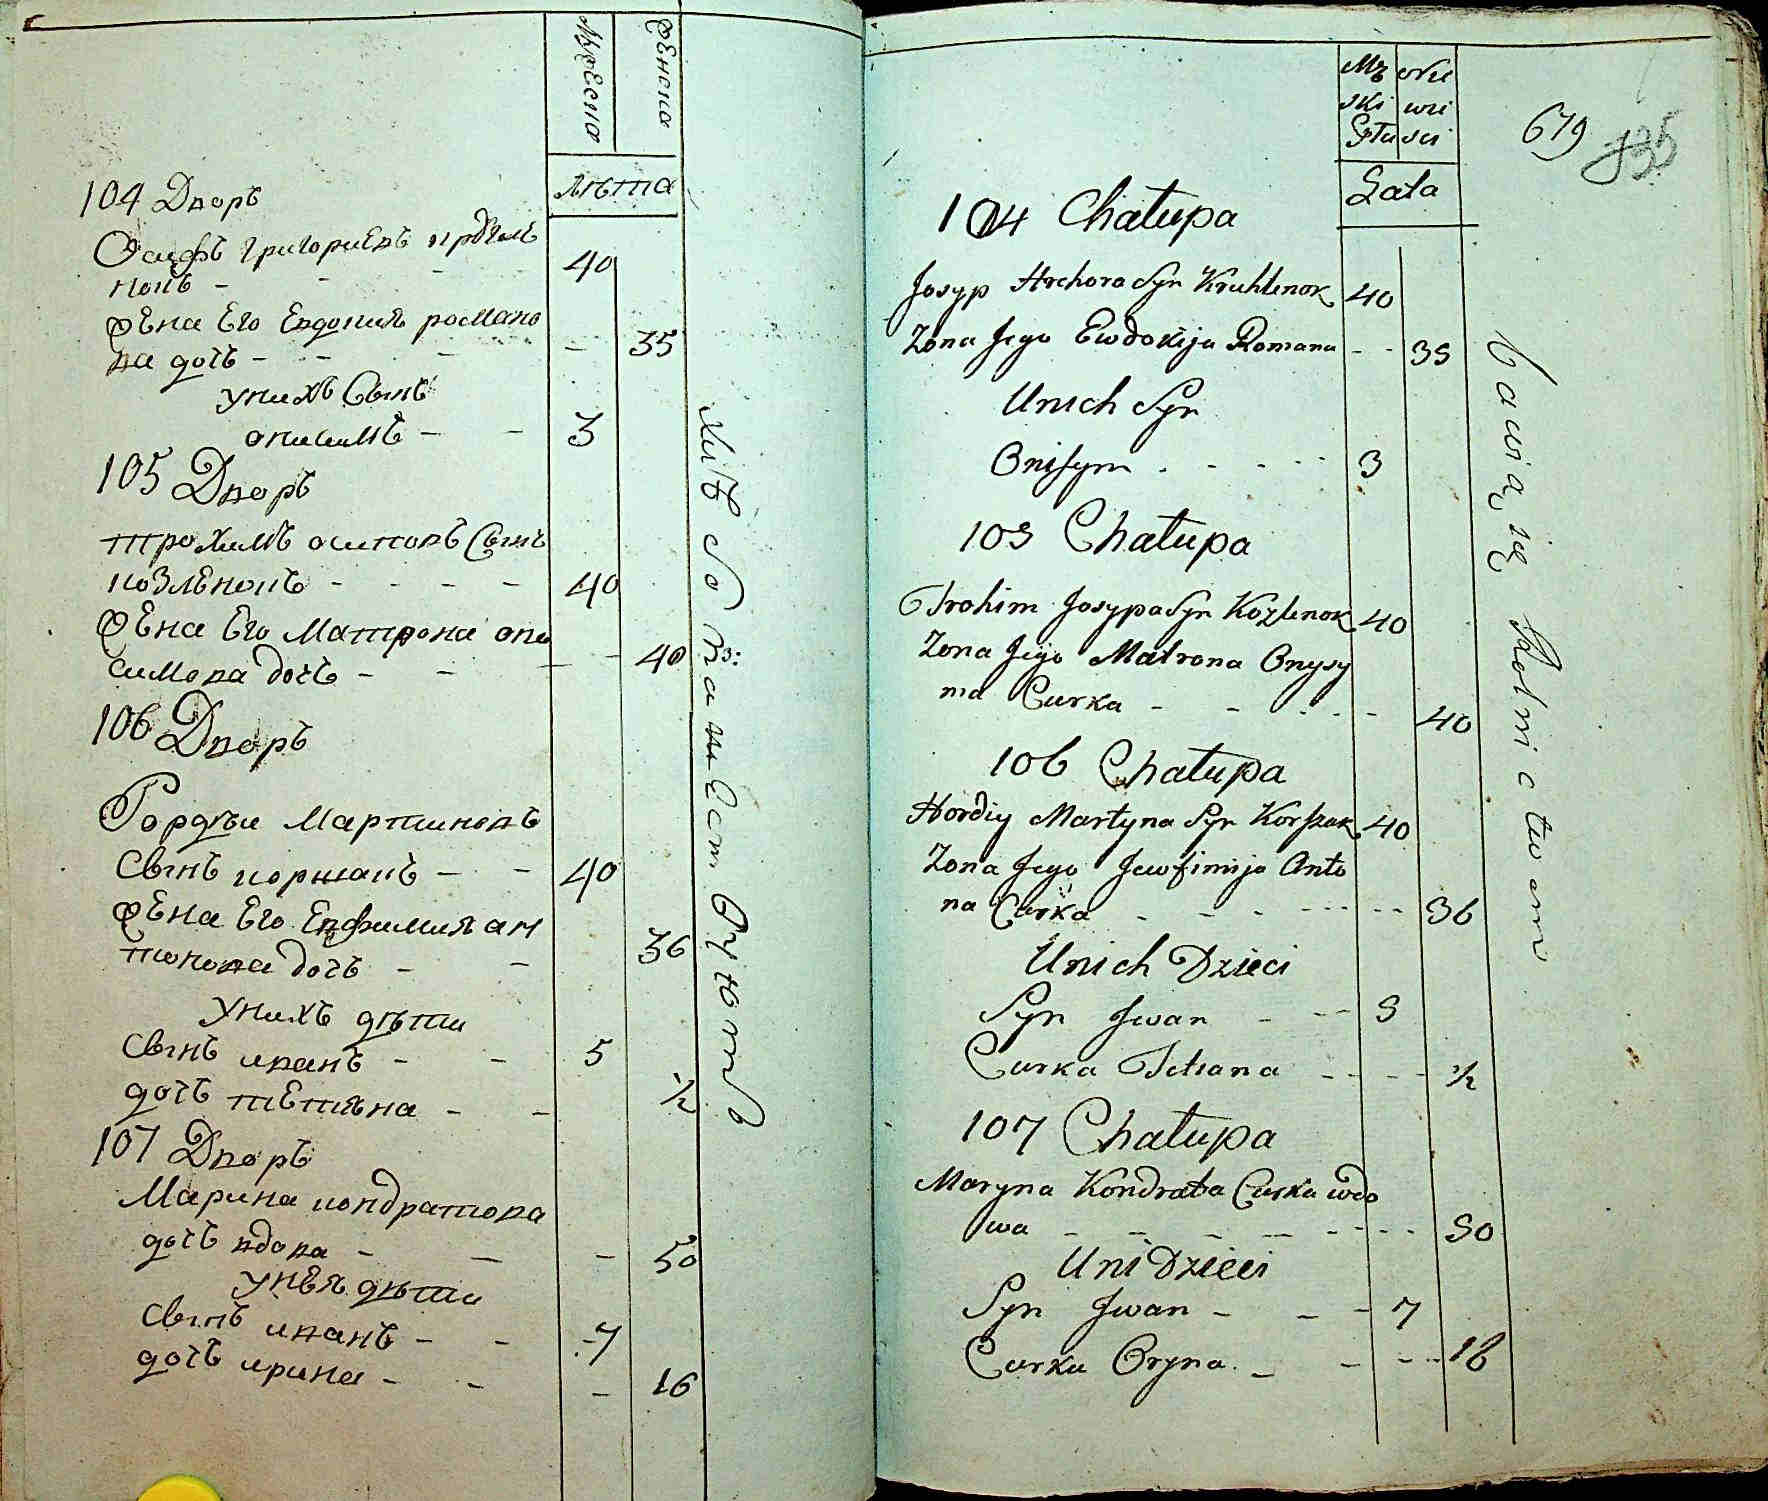 Мужеска
Женска
лѣта
104 Дворъ
Осифъ григориевъ круглѣ
нокъ - - - 40
жена Его Евдокия романо
ва дочь - - - - 35
у нихъ Сынъ
онисимъ - - 3
105 Дворъ
трохимъ осиповъ Сынъ
козленокъ - - - - 40
жена Его Матрона они
симова дочь - - - - 40
106 Дворъ
Гордѣи Мартиновъ
Сынъ коржакъ - - 40
жена Его Евфимия ан
тонова дочь - - 36
у нихъ дѣти
Сынъ иванъ - - 5
дочь тетяна - - ½
107 Дворъ
Марина кондратова
дочь вдова - - - 50
у нея дѣти
Сынъ иванъ - - 7
дочь ирина - - - 16
Mę żeń
ski
Płci
Lata
679 735
104 Chałupa
Josyp Hrehora Syn Kruhlenok 40
Zona Jego Ewdokija Romana - - 35
Unich Syn
Onisym - - - - 3
105 Chałupa
Trohim Josypa Syn Kozlenok 40
Zona Jego Matrona Onysy
ma Curka - - - - - 40
106 Chałupa
Hordiy Martyna Syn Korszak 40
Zona Jego Jewfimija Anto
na Curka - - - - - 36
Unich Dzieci
Syn Jwan - - - 5
Curka Tetiana - - - - ½
107 Chałupa
Maryna Kondrata Curka wdo
wa - - - - - - - - 50
Uni Dzieci
Syn Jwan - - - 7
Curka Oryna - - - - 16
bawią się Rolnictwem